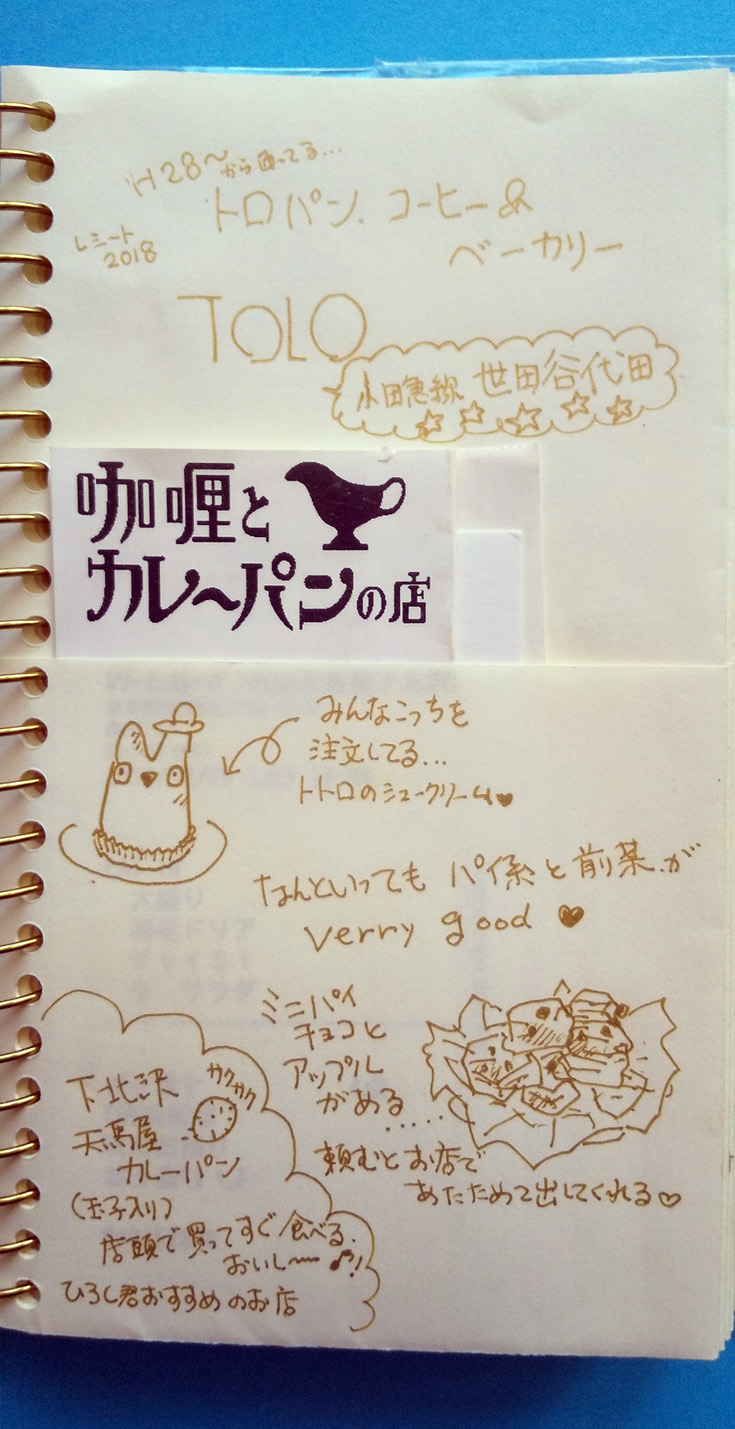 H28〜から通ってる...
トロパン、コーヒー&
ベーカリー
レシート
2018
TOLO
小田急線 世田谷代田
咖喱と
カレーパンの店
みんなこっちを
注文してる...
トトロのシュークリーム♥
なんといっても パイ系と前菜が
verry good ♥
ミニパイ
チョコと
アップル
がある.....
頼むとお店で
あたためて出してくれる♡
下北沢
カクカク
天馬屋
カレーパン
(玉子入り)
店頭で買ってすぐ食べる.
おいし〜〜♪!
ひろし君おすすめのお店